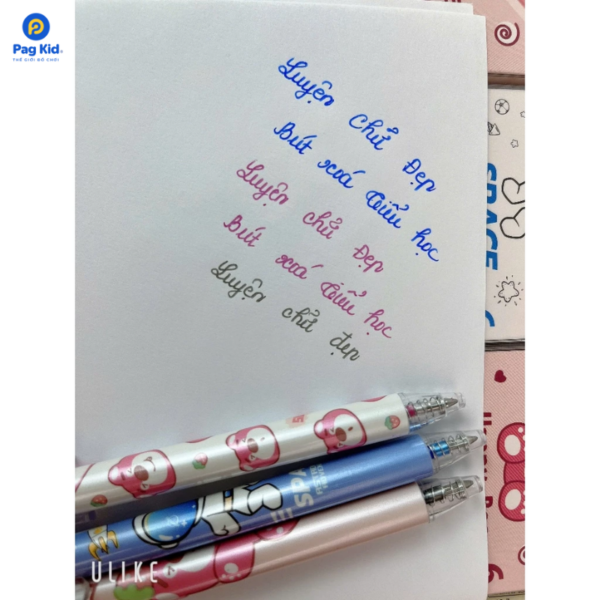 Pag Kid
THẾ GIỚI ĐỒ CHƠI
Luyện Chử Đẹp
Bút xoá Tiểu học
Luyện chử Đẹp
Bút xoá Tiểu học
Luyện chử đẹp
SPACE
ULIKE